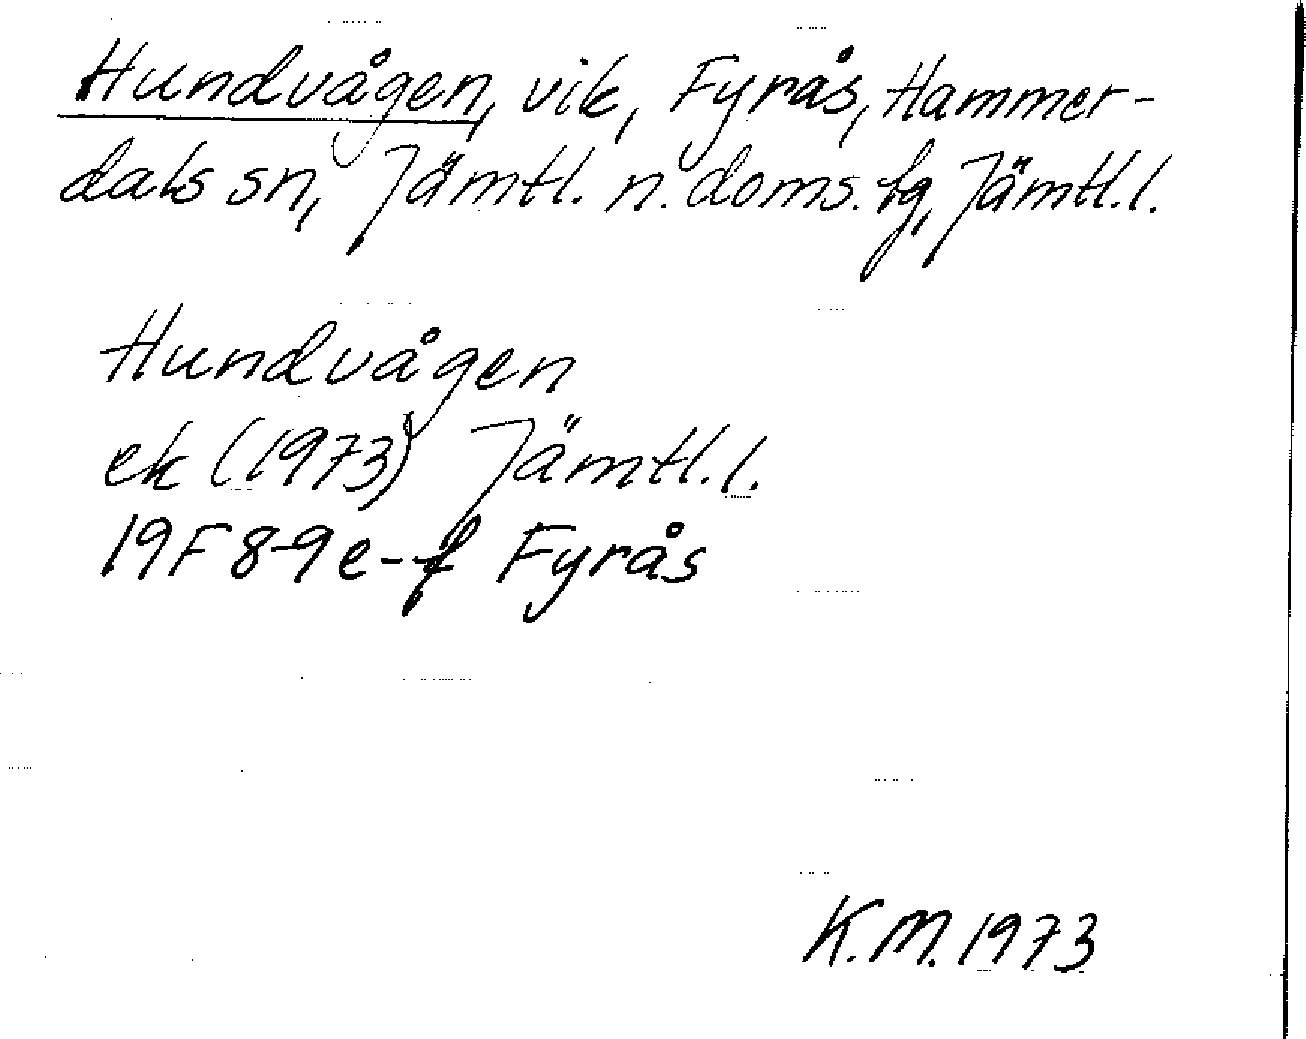 Hundvågen, vik, Fyrås, Hammer-
dals sn, Jämtl. n. doms. fg, Jämtl. l.
Hundvågen
ek (1973) Jämtl. l.
19F 8-9 e-f Fyrås
K.M. 1973